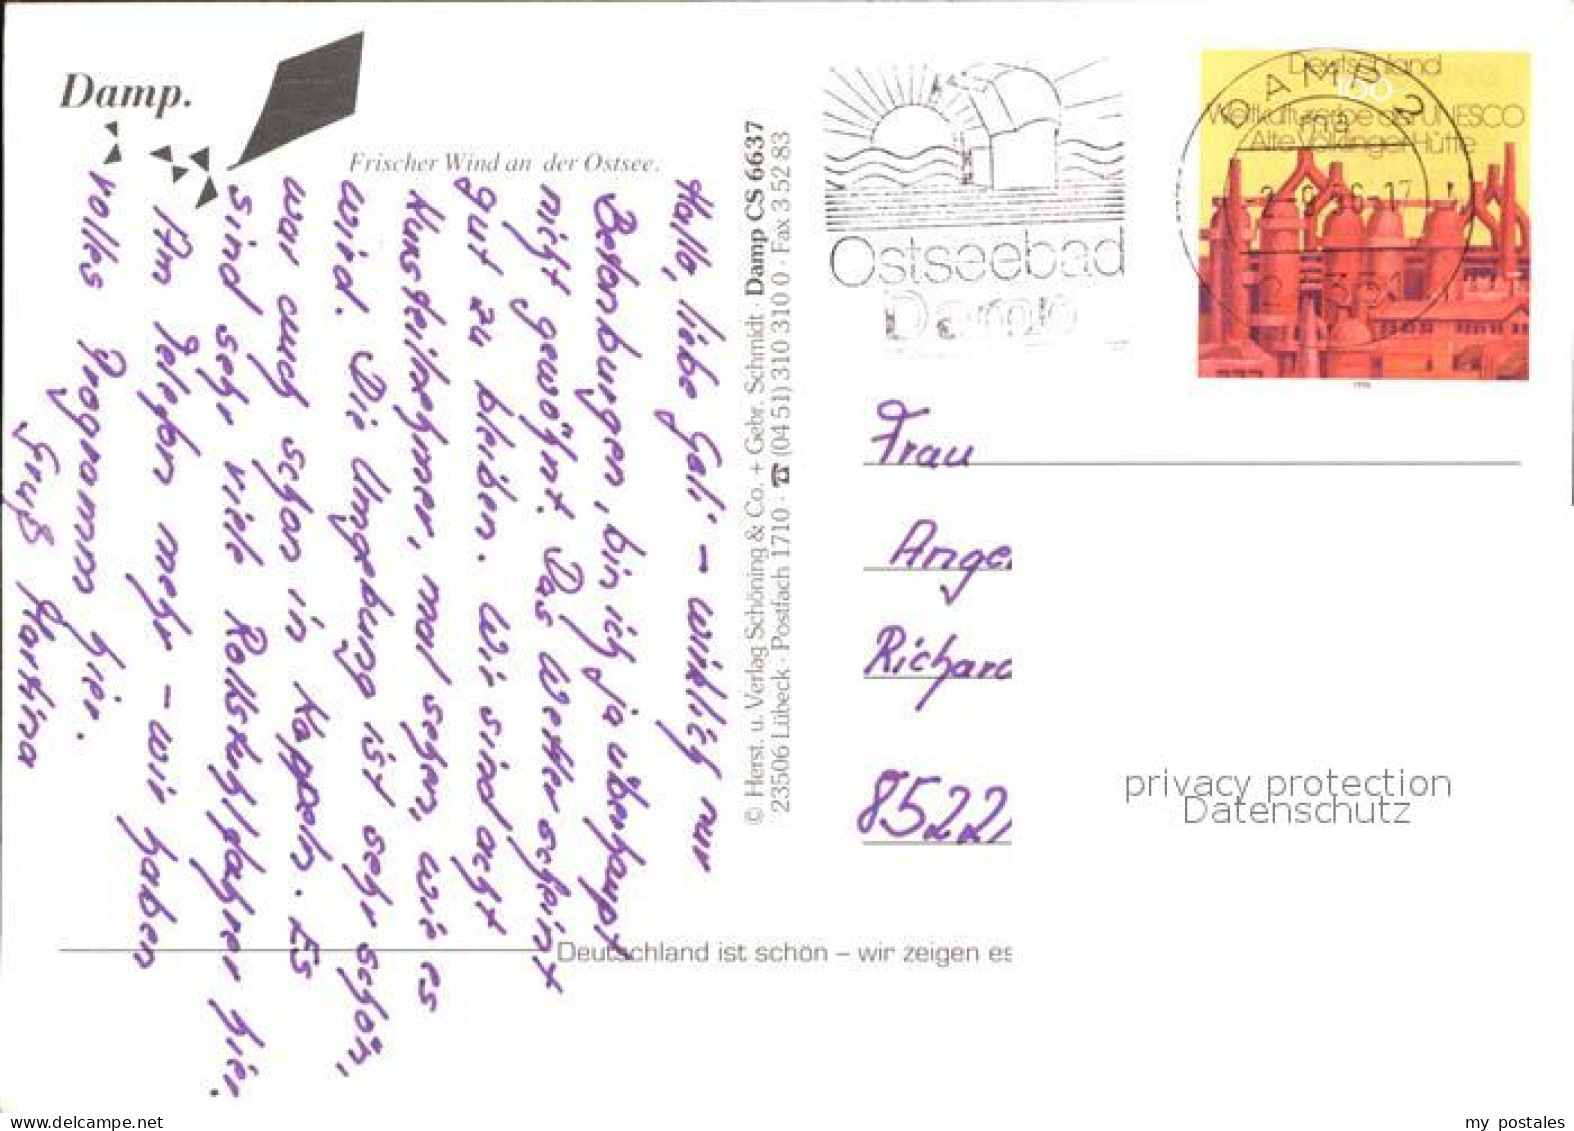 Damp.
Frischer Wind an der Ostsee.
Hallo, liebe Geli - wirklich nur
Bestonburgen, bin ich ja überhaupt
nicht gewöhnt. Das Wetter scheint
gut zu bleiben. Wir sind acht
Kursteilnehmer, mal sehen, wie es
wird. Die Umgebung ist sehr schön,
war auch schon in Kappeln. Es
sind sehr viele Rollstuhlfahrer hier.
Am Telefon mehr - wir haben
volles Programm hier.
Gruß Martina
© Herst. u. Verlag Schöning & Co. + Gebr. Schmidt · Damp CS 6637
23506 Lübeck · Postfach 1710 · ☎ (04 51) 310 310 0 · Fax 3 52 83
Ostseebad
Damp
Deutschland
100
Weltkulturerbe der UNESCO
Alte Völklinger Hütte
1996
DAMP 2
ma
2.-9.96-17
24351
Frau
Ange
Richard
8522
privacy protection
Datenschutz
Deutschland ist schön – wir zeigen es
my postales